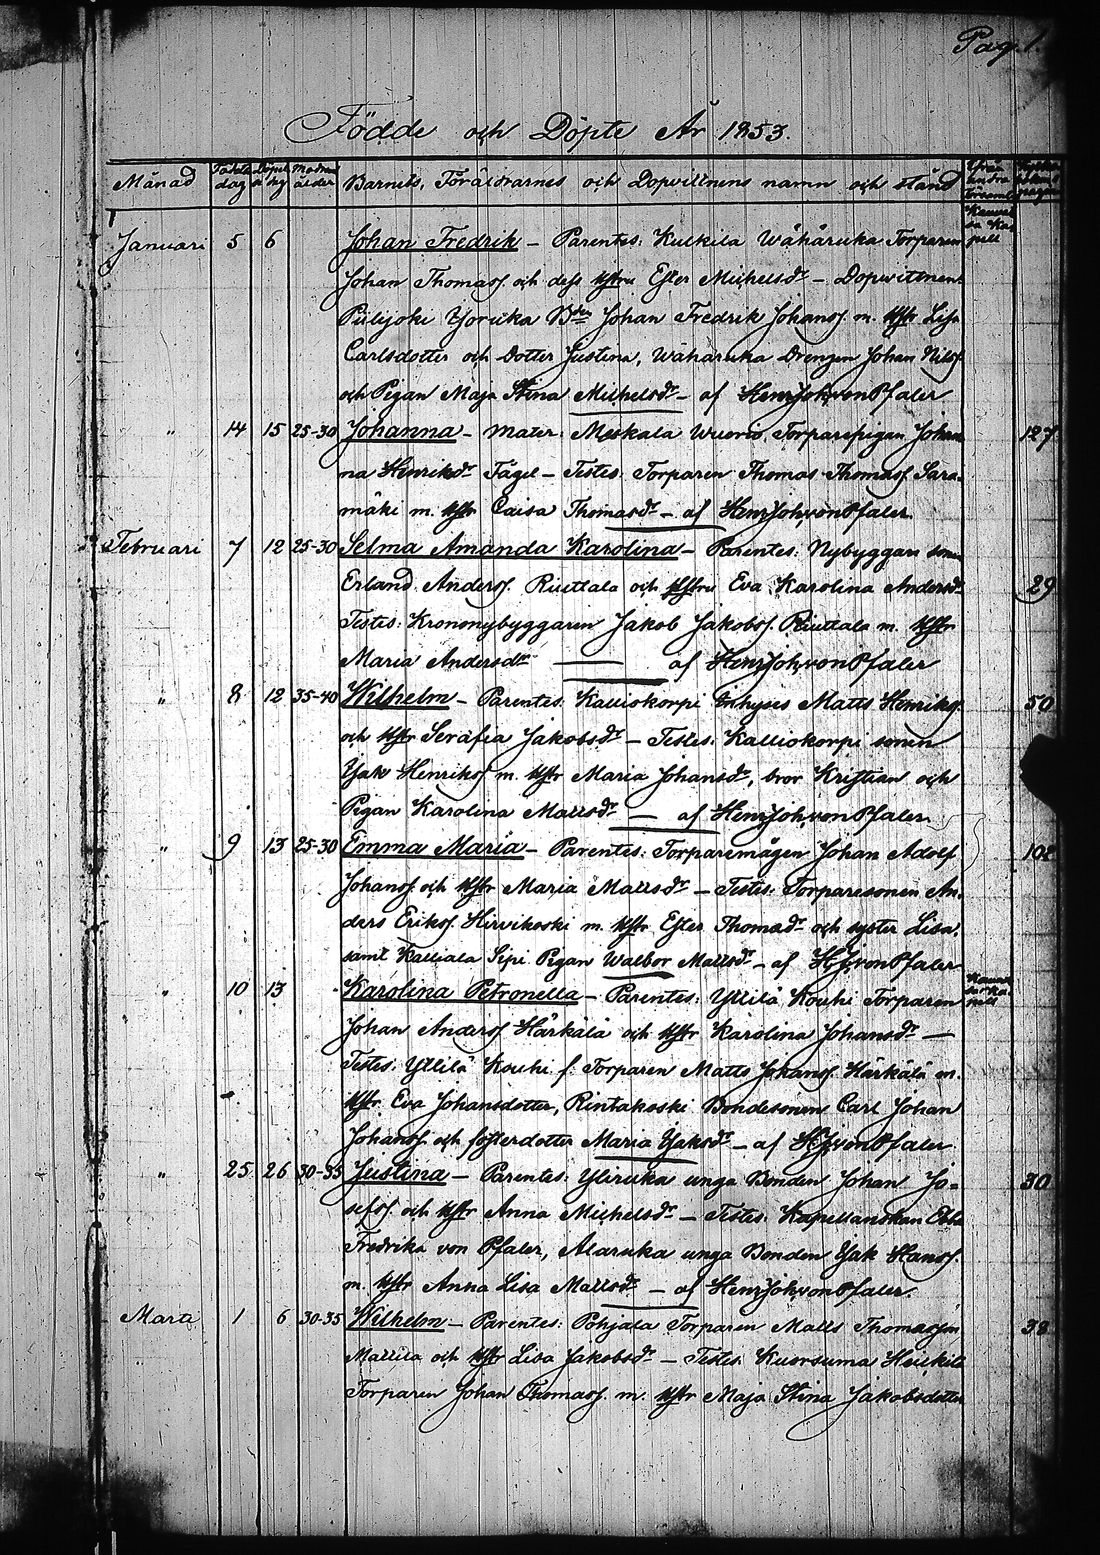 Pag. 1.
Födde och Döpte År 1853.
Månad Födelse dag Döpelse dag Modrens ålder Barnets, Föräldrarnes och Dopvittnens namn och stånd
Januari 5 6 Johan Fredrik – Parentes: Kulkila Wähäruka Torparen Kauvatsa Kapell
Johan Thomass. och dess hstru Ester Michelsdr – Dopwittnen:
Piilijoki Yoruka Bden Johan Fredrik Johanss. m. hstr Lisa
Carlsdotter och Dotter Justina, Wähäruka Drengen Johan Nilss.
och Pigan Maja Stina Michelsdr – af HenrJohvonPfaler
" 14 15 25-30 Johanna – Mater: Meskala Wuorio, Torparepigan Johan- 127
na Henriksdr Tägel – Testes: Torparen Thomas Thomass. Sara-
mäki m. hstr Caisa Thomasdr – af HenrJohvonPfaler.
Februari 7 12 25-30 Selma Amanda Karolina – Parentes: Nybyggare sonen
Erland Anderss. Riuttala och hstru Eva Karolina Andersdr 29
Testes: Krononybyggaren Jakob Jakobss. Riuttala m. hstr
Maria Andersdtr — af HenrJohvonPfaler
" 8 12 35-40 Wilhelm – Parentes: Kalliokorpi Inhyses Matts Henrikss. 50
och hstr Serafia Jakobsdr – Testes: Kalliokorpi sonen
Isak Henrikss. m. hstr Maria Johansdr, bror Kristian och
Pigan Karolina Mattsdr — af HenrJohvonPfaler.
" 9 13 25-30 Emma Maria – Parentes: Torparemågen Johan Adolf 102
Johanss. och hstr Maria Mattsdr – Testes: Torparesonen An-
ders Erikss. Hirvikoski m. hstr Ester Thomasdr och syster Lisa,
samt Kalliala Sipi Pigan Walbor Mattsdr – af HJvonPfaler
" 10 13 Karolina Petronella – Parentes: Yttilä Kouhi Torparen Kauvatsa Kapell
Johan Anderss. Härkälä och hstr Karolina Johansdr —
Testes: Yttilä Kouhi f. Torparen Matts Johanss. Härkälä m.
hstr Eva Johansdotter, Rintakoski Bondesonen Carl Johan
Johanss. och fosterdotter Maria Isaksdr – af HJvonPfaler
" 25 26 30-35 Justina – Parentes: Yliruka unga Bonden Johan Jo- 30
sefss. och hstr Anna Michelsdr – Testes: Kapellanskan Ebba
Fredrika von Pfaler, Alaruka unga Bonden Isak Hanss.
m. hstr Anna Lisa Mattsdr – af HenrJohvonPfaler
Marti 1 6 30-35 Wilhelm – Parentes: Pohjala Torparen Matts Thomasson 38
Mattila och hstr Lisa Jakobsdr – Testes: Kuorsuma Heikkilä
Torparen Johan Thomass. m. hstr Maja Stina Jakobsdotter